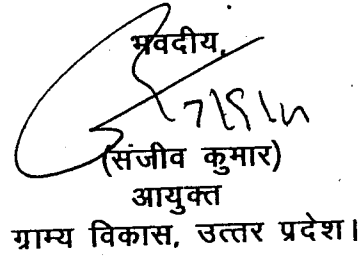 भवदीय,
(संजीव कुमार)
आयुक्त
ग्राम्य विकास, उत्तर प्रदेश।